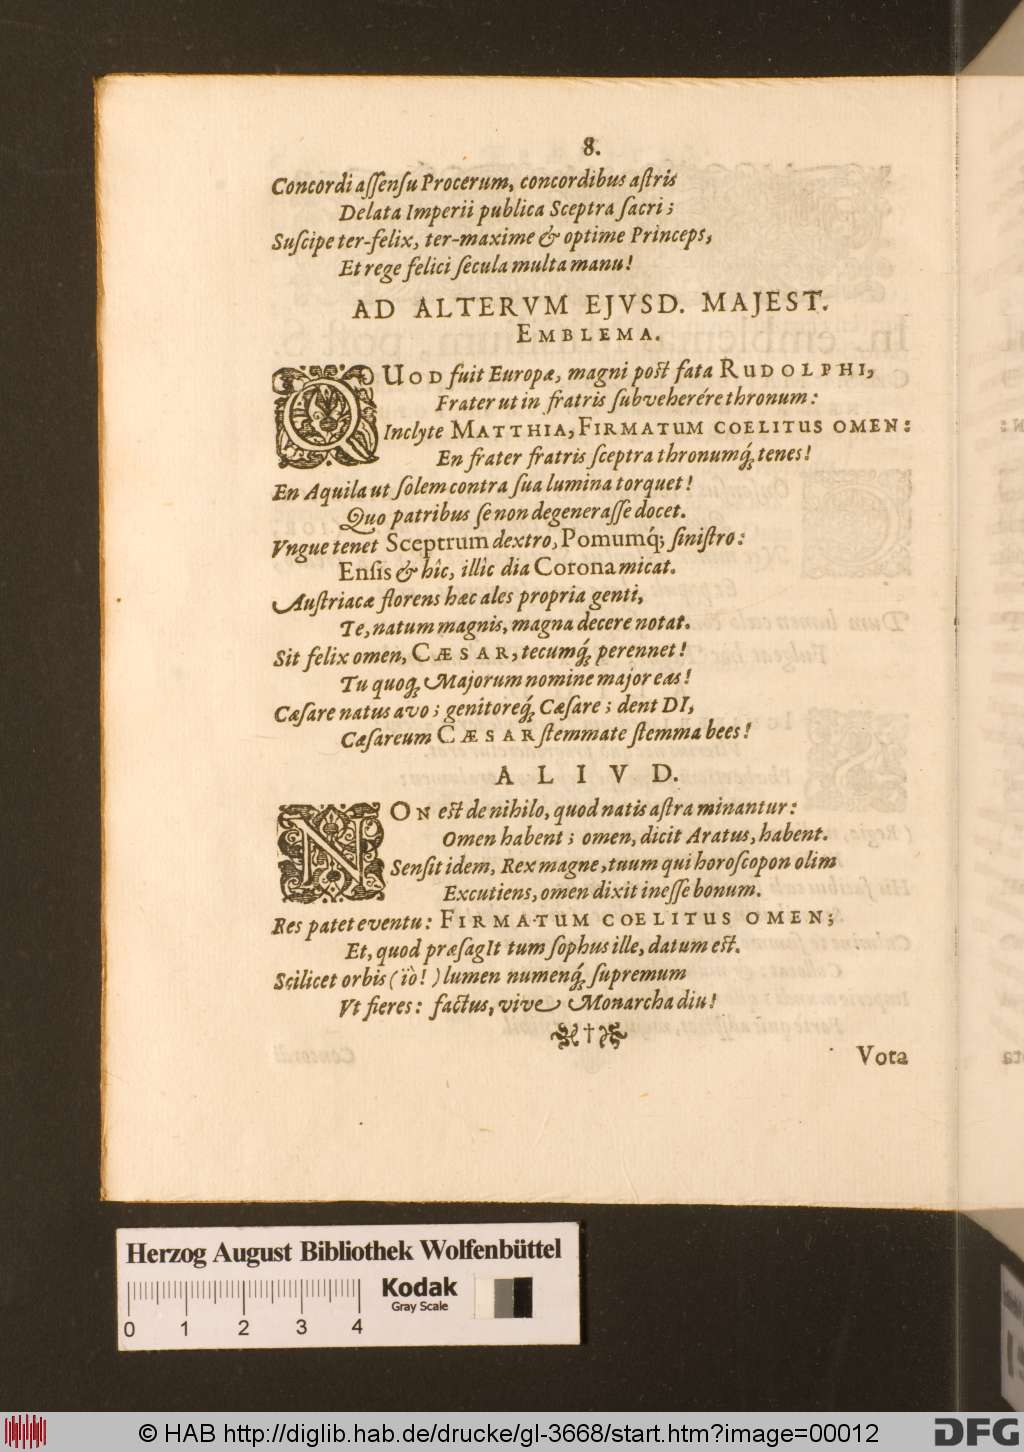 8.
Concordi assensu Procerum, concordibus astris
Delata Imperii publica Sceptra sacri;
Suscipe ter-felix, ter-maxime & optime Princeps,
Et rege felici secula multa manu!
AD ALTERVM EJVSD. MAJEST.
EMBLEMA.
QUOD fuit Europæ, magni post fata RUDOLPHI,
Frater ut in fratris subveherére thronum:
Inclyte MATTHIA, FIRMATUM COELITUS OMEN:
En frater fratris sceptra thronumq́; tenes!
En Aquila ut solem contra sua lumina torquet!
Quo patribus se non degenerasse docet.
Vngue tenet Sceptrum dextro, Pomumq́; sinistro:
Ensis & hîc, illîc dia Corona micat.
Austriacæ florens hæc ales propria genti,
Te, natum magnis, magna decere notat.
Sit felix omen, CÆSAR, tecumq́; perennet!
Tu quoq; Majorum nomine major eas!
Cæsare natus avo; genitoreq́; Cæsare; dent DI,
Cæsareum CÆSAR stemmate stemma bees!
ALIVD.
NON est de nihilo, quod natis astra minantur:
Omen habent; omen, dicit Aratus, habent.
Sensit idem, Rex magne, tuum qui horoscopon olim
Excutiens, omen dixit inesse bonum.
Res patet eventu: FIRMATUM COELITUS OMEN;
Et, quod præsagIt tum sophus ille, datum est.
Scilicet orbis (ïò!) lumen numenq́; supremum
Vt fieres: factus, vive Monarcha diu!
Vota
Herzog August Bibliothek Wolfenbüttel
Kodak
Gray Scale
0 1 2 3 4
© HAB http://diglib.hab.de/drucke/gl-3668/start.htm?image=00012
DFG